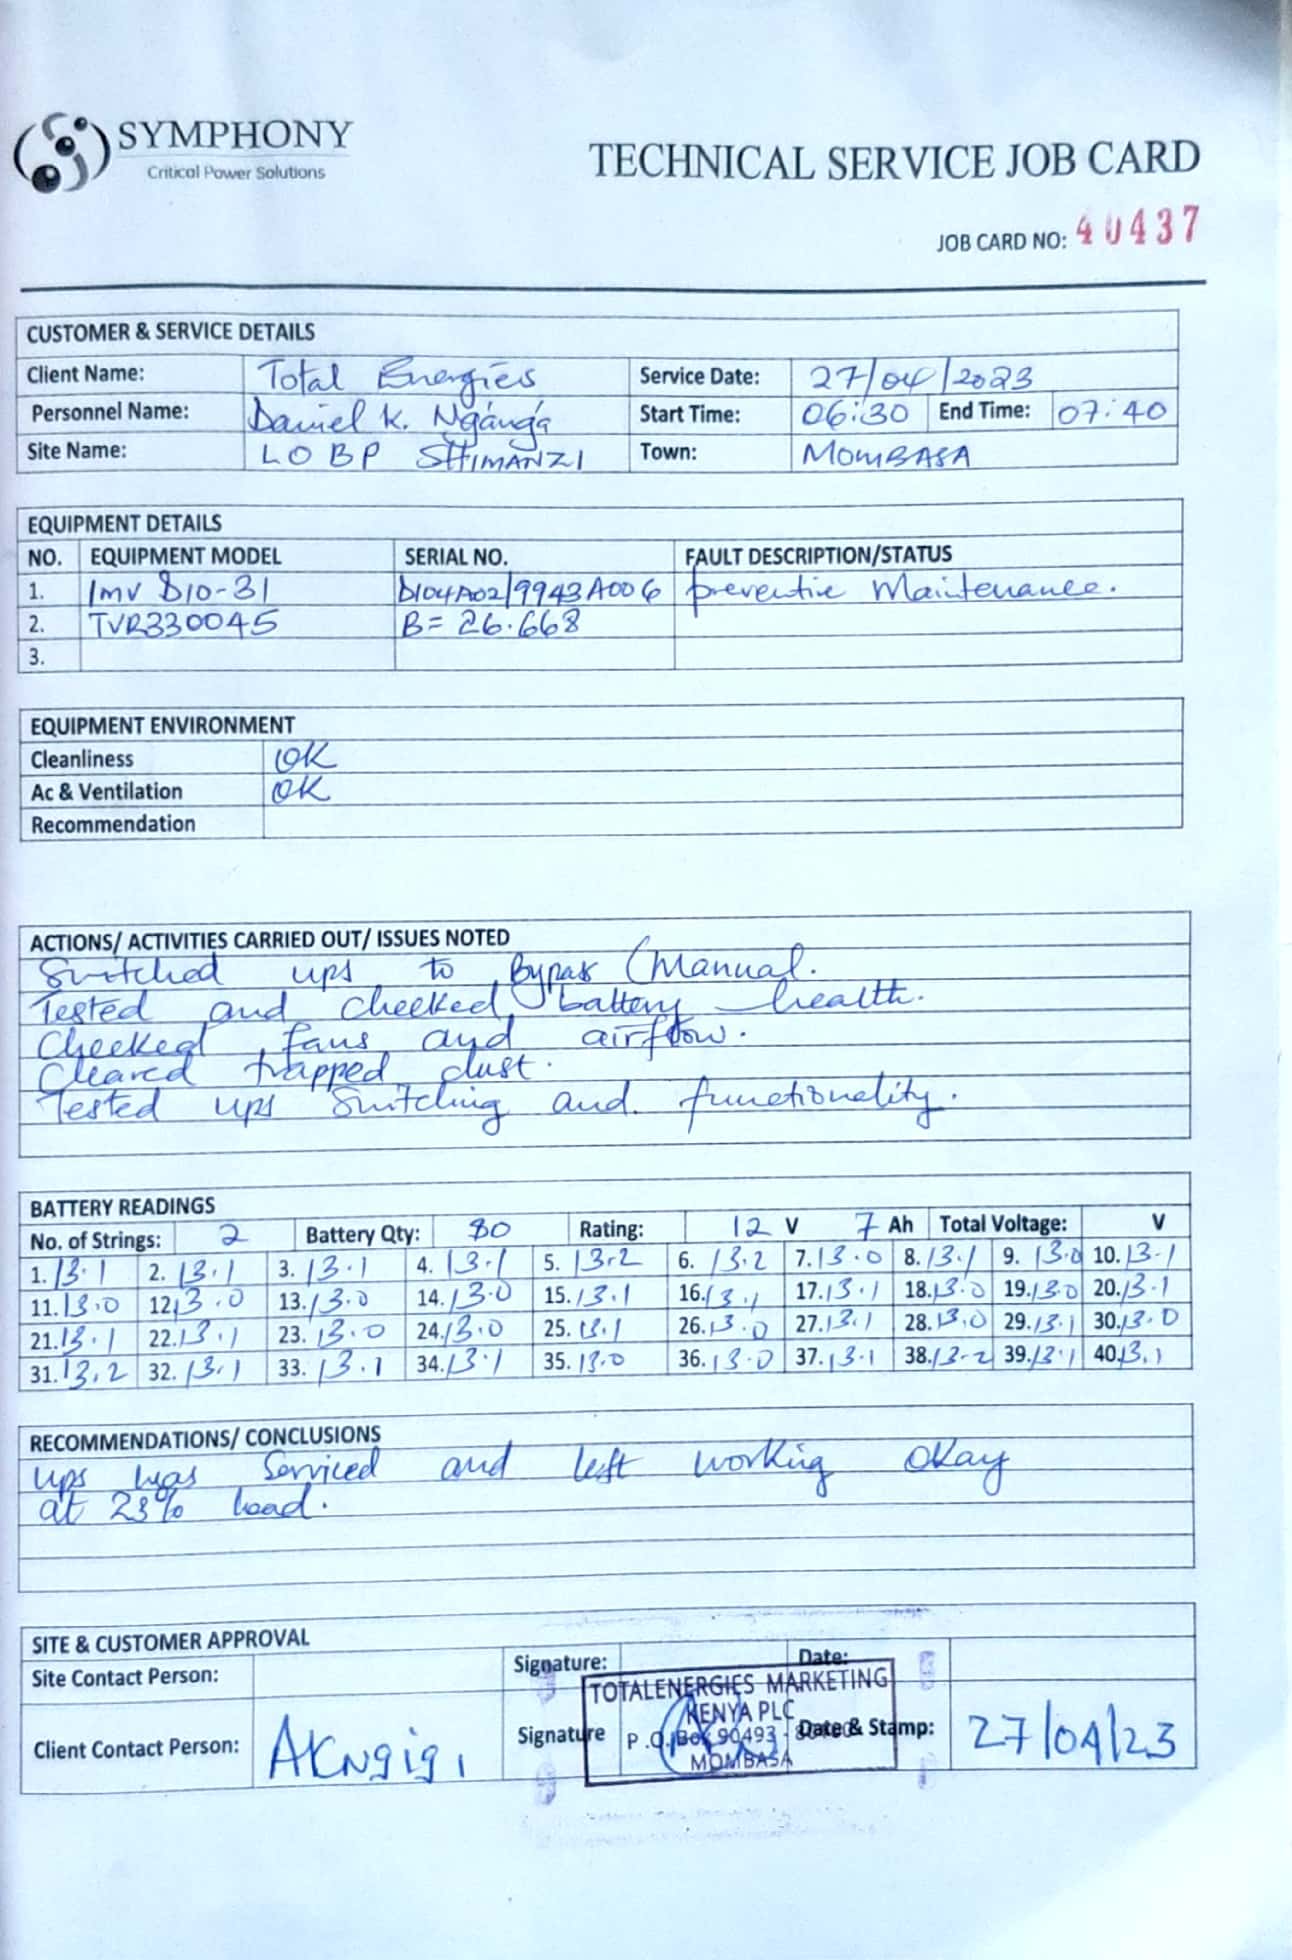 SYMPHONY
Critical Power Solutions
TECHNICAL SERVICE JOB CARD
JOB CARD NO: 40437
CUSTOMER & SERVICE DETAILS
Client Name: Total Energies Service Date: 27/04/2023
Personnel Name: Daniel K. Ng'ang'a Start Time: 06:30 End Time: 07:40
Site Name: LOBP SHIMANZI Town: MOMBASA
EQUIPMENT DETAILS
NO. EQUIPMENT MODEL SERIAL NO. FAULT DESCRIPTION/STATUS
1. Imv S10-31 D104A02/9943A006 preventive Maintenance.
2. TVR330045 B= 26.668
3.
EQUIPMENT ENVIRONMENT
Cleanliness OK
Ac & Ventilation OK
Recommendation
ACTIONS/ ACTIVITIES CARRIED OUT/ ISSUES NOTED
Switched ups to Bypass (Manual.
Tested and checked battery health.
Checked fans and airflow.
Cleared trapped dust.
Tested ups switching and functionality.
BATTERY READINGS
No. of Strings: 2 Battery Qty: 80 Rating: 12 V 7 Ah Total Voltage: V
1. 13.1 2. 13.1 3. 13.1 4. 13.1 5. 13.2 6. 13.2 7. 13.0 8. 13.1 9. 13.0 10. 13.1
11. 13.0 12. 13.0 13. 13.0 14. 13.0 15. 13.1 16. 13.1 17. 13.1 18. 13.0 19. 13.0 20. 13.1
21. 13.1 22. 13.1 23. 13.0 24. 13.0 25. 13.1 26. 13.0 27. 13.1 28. 13.0 29. 13.1 30. 13.0
31. 13.2 32. 13.1 33. 13.1 34. 13.1 35. 13.0 36. 13.0 37. 13.1 38. 13.2 39. 13.1 40. 13.1
RECOMMENDATIONS/ CONCLUSIONS
ups was Serviced and left working Okay
at 23% load.
SITE & CUSTOMER APPROVAL
Site Contact Person: Signature: Date:
TOTALENERGIES MARKETING
KENYA PLC
P.O. Box 90493 -
MOMBASA
Client Contact Person: AKngigi Signature Date & Stamp: 27/04/23